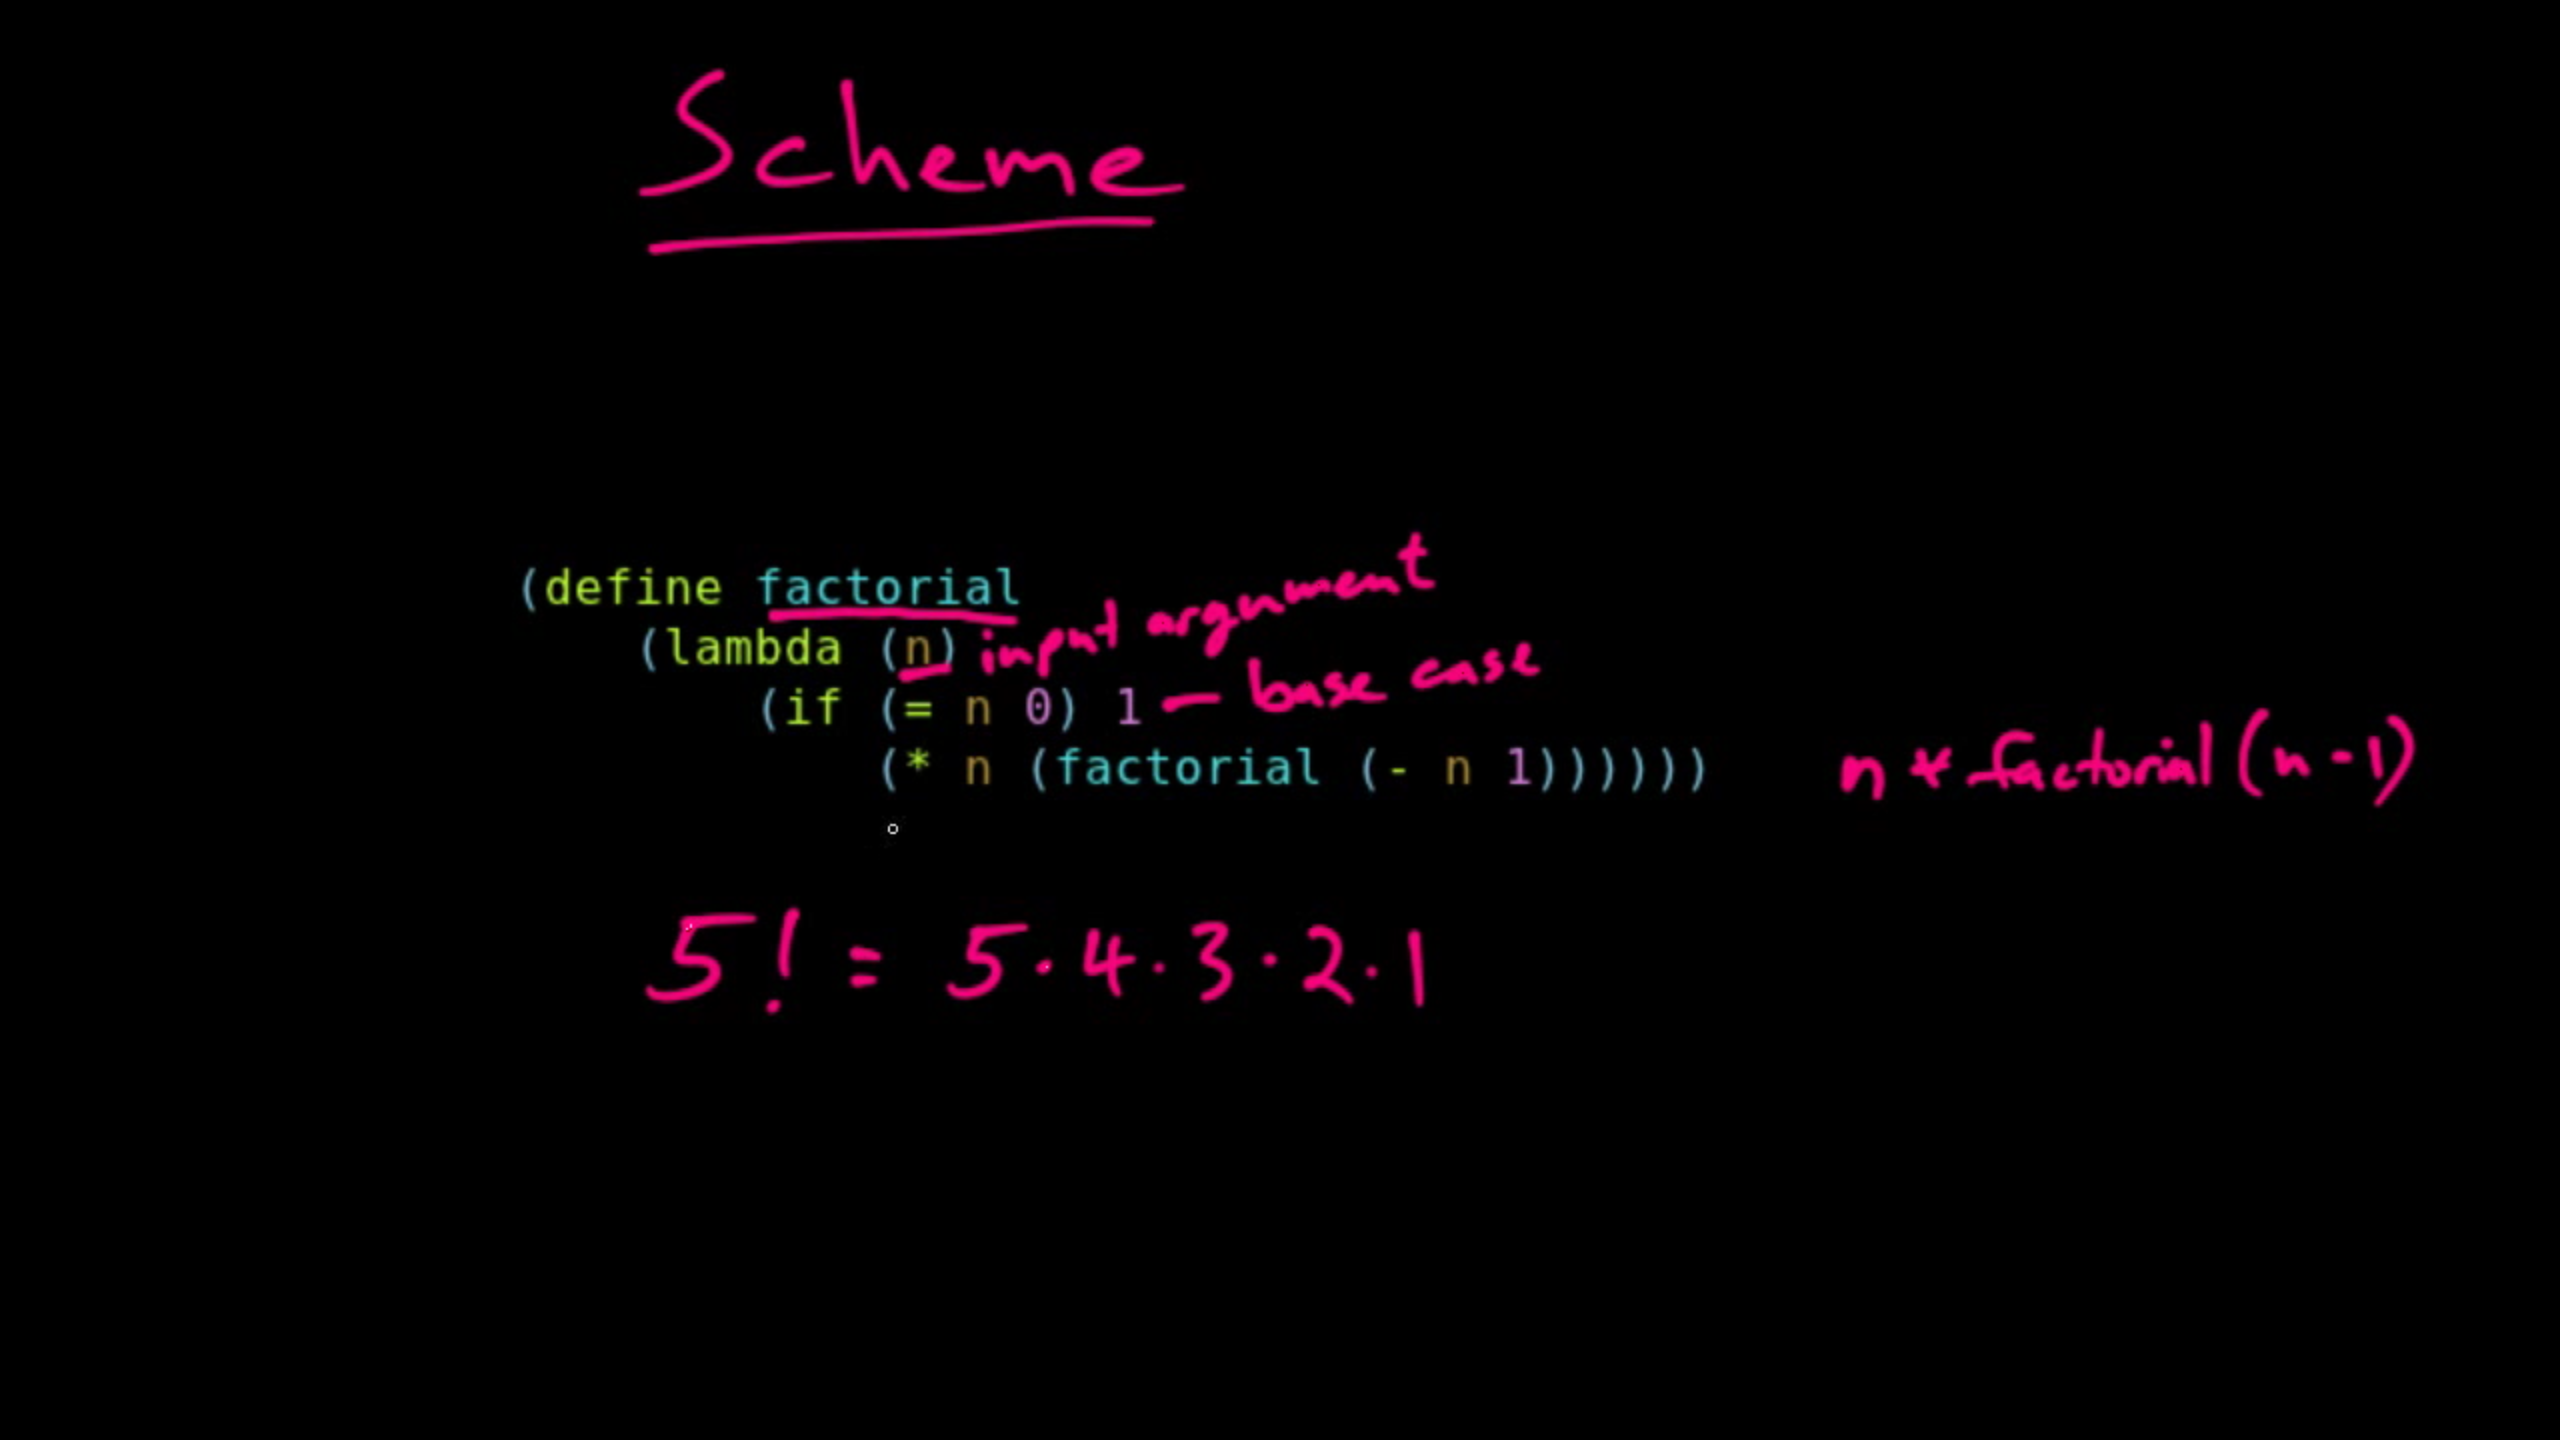 Scheme
(define factorial
(lambda (n) input argument
(if (= n 0) 1 — base case
(* n (factorial (- n 1)))))) n * factorial (n - 1)
5! = 5 · 4 · 3 · 2 · 1